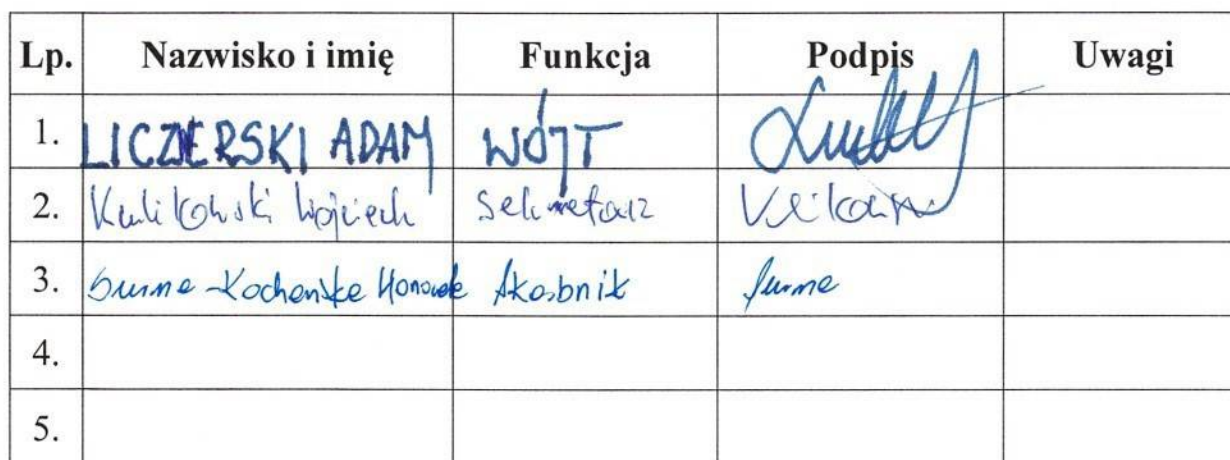 Lp. Nazwisko i imię Funkcja Podpis Uwagi
1. LICZNERSKI ADAM WÓJT
2. Kulikowski Wojciech Sekretarz
3. Surma-Kochańska Skarbnik
4.
5.